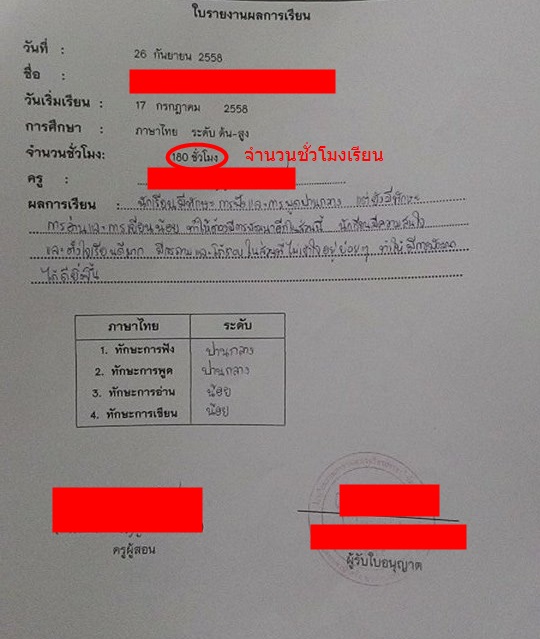 ใบรายงานผลการเรียน
วันที่ : 26 กันยายน 2558
ชื่อ :
วันเริ่มเรียน : 17 กรกฎาคม 2558
การศึกษา : ภาษาไทย ระดับ ต้น-สูง
จำนวนชั่วโมง: 180 ชั่วโมง จำนวนชั่วโมงเรียน
ครู :
ผลการเรียน : นักเรียนมีทักษะการฟังและการพูดปานกลาง แต่ยังมีทักษะ
การอ่านและการเขียนน้อย ทำให้ต้องมีการพัฒนาอีกในส่วนนี้ นักเรียนมีความสนใจ
และตั้งใจเรียนดีมาก มีการถามและโต้ตอบในส่วนที่ไม่เข้าใจอยู่บ่อยๆ ทำให้มีการพัฒนา
ได้ดียิ่งขึ้น
ภาษาไทย ระดับ
1. ทักษะการฟัง ปานกลาง
2. ทักษะการพูด ปานกลาง
3. ทักษะการอ่าน น้อย
4. ทักษะการเขียน น้อย
ครูผู้สอน
ผู้รับใบอนุญาต